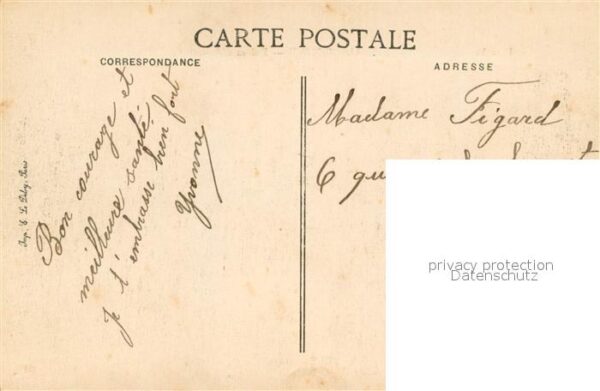 CARTE POSTALE
CORRESPONDANCE
ADRESSE
Bon courage et
meilleure santé
Je t'embrasse bien fort
Yvonne
Madame Figard
6
privacy protection
Datenschutz